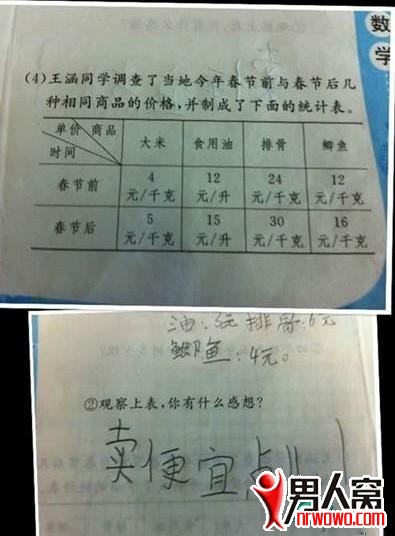 数
学
(4)王涵同学调查了当地今年春节前与春节后几
种相同商品的价格,并制成了下面的统计表。
单价 商品 时间 大米 食用油 排骨 鲫鱼
春节前 4元/千克 12元/升 24元/千克 12元/千克
春节后 5元/千克 15元/升 30元/千克 16元/千克
油:3元 排骨:6元
鲫鱼:4元。
②观察上表,你有什么感想?
卖便宜点儿!
男人窝
nrwowo.com